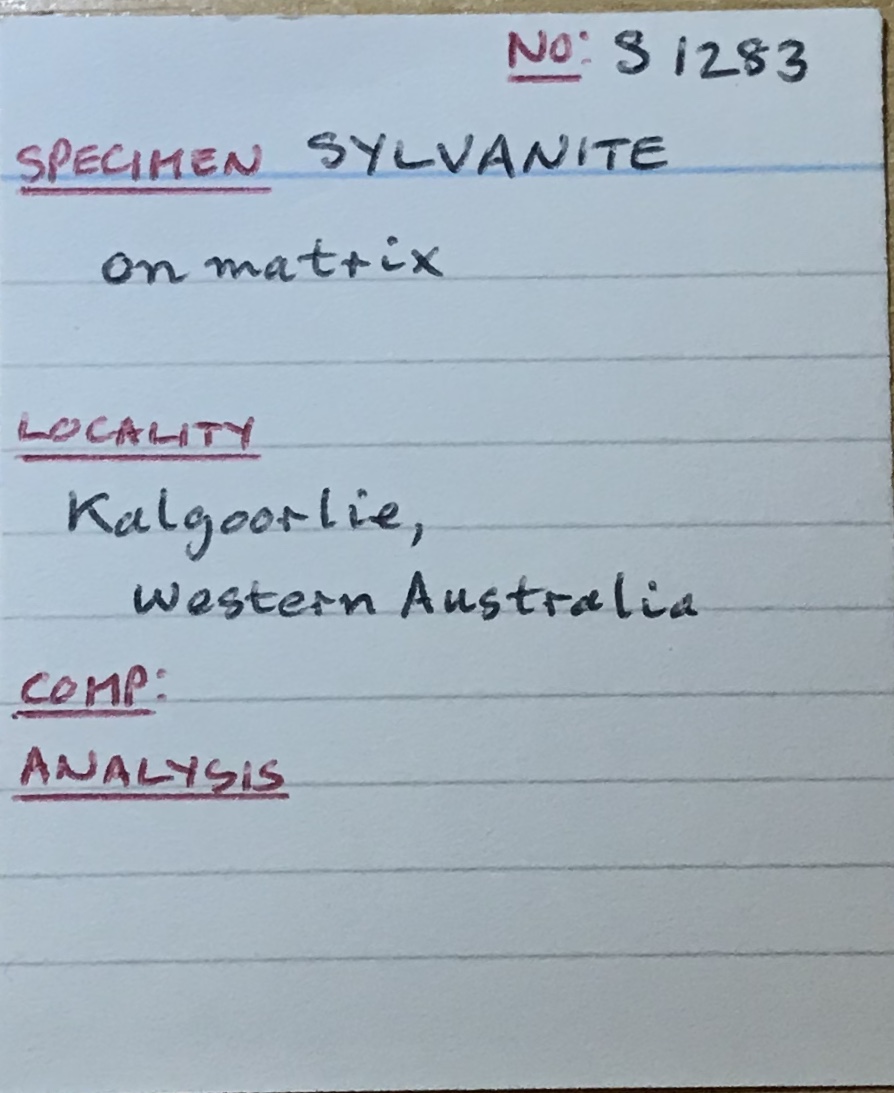 NO: S 1283
SPECIMEN SYLVANITE
on matrix
LOCALITY
Kalgoorlie,
Western Australia
COMP:
ANALYSIS